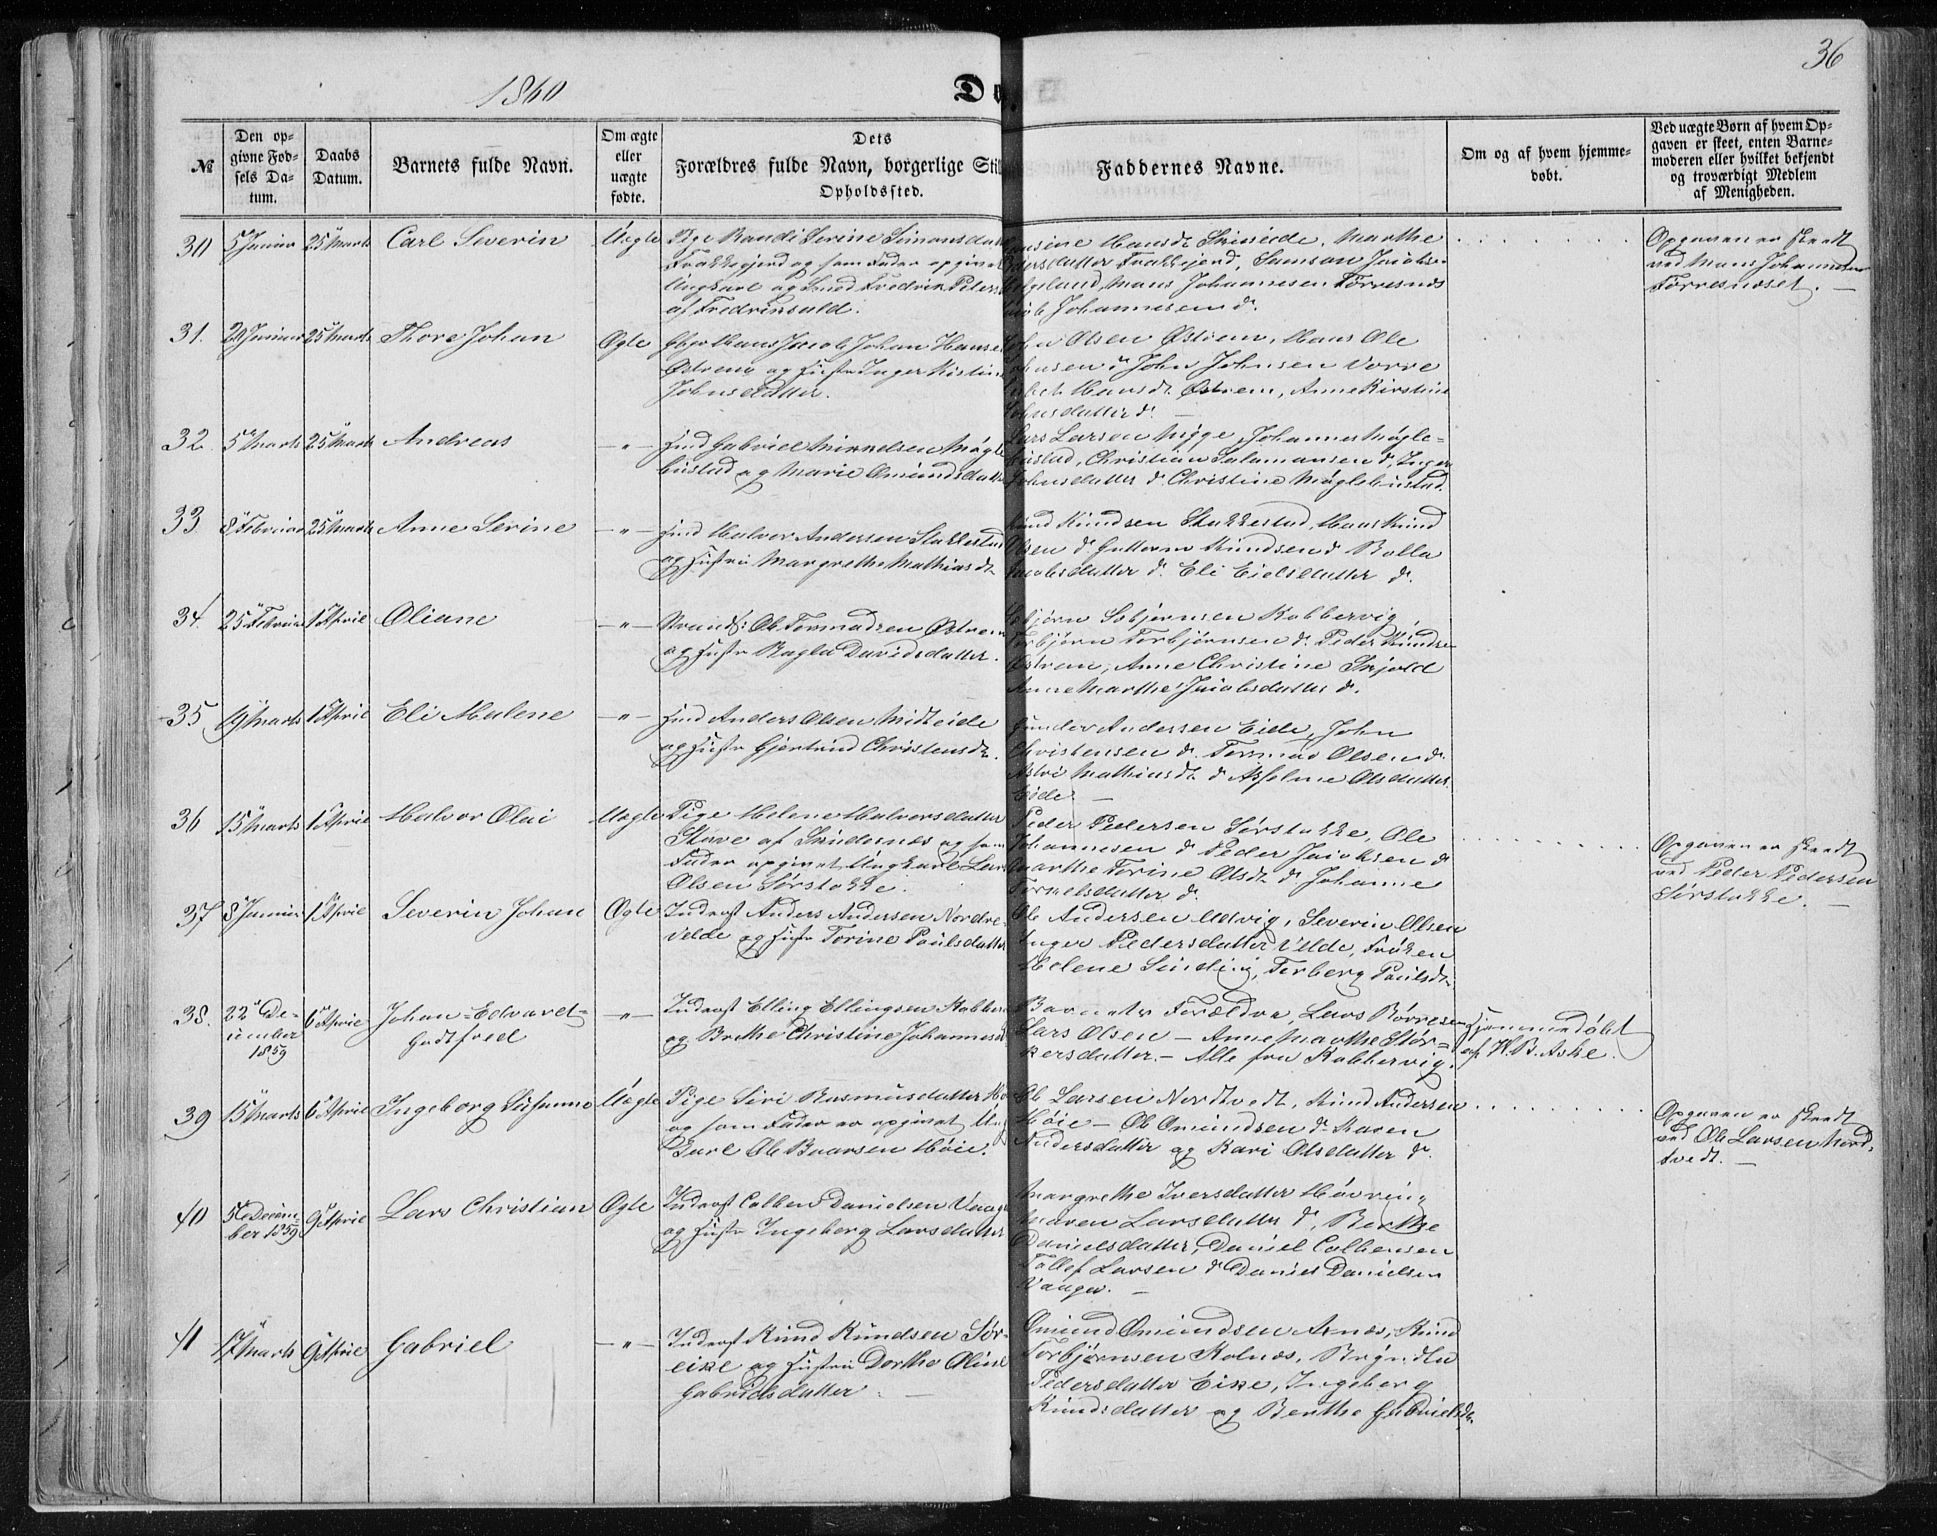 36
1860
Do
№
Den op-
givne Fød-
sels Da-
tum.
Daabs
Datum.
Barnets fulde Navn.
Om ægte
eller
uægte
fødte.
Dets
Forældres fulde Navn, borgerlige Stil
Opholdssted.
Faddernes Navne.
Om og af hvem hjemme-
døbt.
Ved uægte Børn af hvem Op-
gaven er skeet, enten Barne-
moderen eller hvilket bekjendt
og troværdigt Medlem
af Menigheden.
30
5 Januar
25 Marts
Carl Severin
Uægte
Pige Randi Serine Simonsdat
og som Fader opgivet
Ungkarl og Smed Fredrik Peters
af Fredrikshald.
Hansdt Marthe
datter Samson Jacobsen
Mans Johannesen Førresnæs
Johannesen do.
Opgaven er skeedt
ved Mans Johannesen
Førresnæset. —
31.
29 Januar
25 Marts
Thore Johan
Ægte
Jacob Johan Hanse
Østrem og Hustr Inger Kistine
Johnsdatter.
Olsen Østrem, Hans Ole
Johnsen do John Johnsen Vorre
Hansdt Østrem, Anne Kirstine
Johnsdatter do. —
32.
5 Marts
25 Marts
Andreas
— „ —
Gabriel Mikkelsen Møgle
bustad og Marie Omundsdatter
Lars Larsen Mygge, Johannes Møgle-
bustad, Christian Salamonsen do, Inger
Johnsdatter do. Christine Møglebustad.
33
8 Februar
25 Marts
Anne Serine
— „ —
Halvor Andersen Stakkestad
og Hustru Margrethe Mathiasdt.
Knud Knudsen Stakkestad, Hans Knud
Olsen do. Guttorm Knudsen do Bolla
Jacobsdatter do. Eli Eielsdatter do.
34.
25 Februar
1 April
Oliane
— „ —
Strands: Ole Tormodsen Østrem
og Hustr Ragla Davidsdatter.
Esbjørn Esbjørnsen Kobbervig,
Torbjørn Torbjørnsen do. Peder Knudsen
Østrem, Anne Christine Skjold
Anne Marthe Jacobsdatter do.
35
19 Marts
1 April
Eli Malene
— „ —
Anders Olsen Midteide
og Hustr Gjertrud Christensdt.
Gunder Andersen Eide, John
Christensen do. Tormod Olsen do.
Astri Mathiasdt do Olsdatter
Eide. —
36
15 Marts
1 April
Halvor Olai
Uægte
Pige Helene Halversdatter
Stave af Skudesnæs og som
Fader opgivet Ungkarl Lars
Olsen Sørstokke.
Peder Pedersen Sørstokke, Ole
Johannesen do Peder Jacobsen do
Marthe Torine Olsdt do Johanne
datter do.
Opgaven er skeedt
ved Peder Pedersen
Sørstokke. —
37
8 Januar
1 April
Severin Johan
Ægte
Inderst Anders Andersen Nordre-
Velde og Hustr Torine Paulsdatter
Ole Andersen Udvig, Severin Olsen
Inger Pedersdatter Velde, Frøken
Helene Sunding, Torberg Paulsdt.
38.
22 De-
cember
1859
6 April
Johan-Edvard-
Godtfred
— „ —
Inderst Elling Ellingsen Kobber
og Brethe Christine Johannesd
Barnets Forældre, Lars Børresen
Lars Olsen — Anne Marthe Stør-
kersdatter. — Alle fra Kobbervig.
Hjemmedøbt
af H. B. Aske.
39
15 Marts
6 April
Ingeborg Susanne
Uægte
Pige Siri Rasmusdatter
og som Fader er opgivet Un
Karl Ole Baarsen Høie.
Ole Larsen Nordtvedt, Knud Andersen
Høie — Ole Omundsen do. Karen
Andersdatter og Kari Olsdatter do.
Opgaven er skeedt
ved Ole Larsen Nord-
tvedt. —
40
5 Decem-
ber 1859
9 April
Lars Christian
Ægte
Inderst Colben Danielsen Vaage
og Hustr Ingeborg Larsdatter
Margrethe Iversdatter Høvring
Maren Larsdatter do, Berthe
Danielsdatter, Daniel Colbensen
Tollef Larsen do Daniel Danielsen
Vaage. —
41
17 Marts
9 April
Gabriel
— „ —
Inderst Knud Knudsen Sør-
eike og Hustru Dorthe Oline
Gabrielsdatter. —
Omund Omundsen Aenæs, Knud
Torbjørnsen Kolnæs, Brynhla
Pedersdatter Eike, Ingeborg
Knudsdatter og Berthe Gabrielsdt.